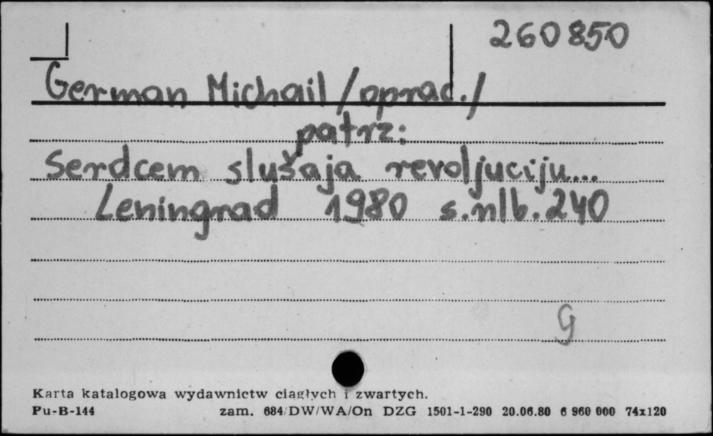 260850
German Michail /oprac./
patrz:
Serdcem slušaja revoljuciju...
Leningrad 1980 s.nlb.240
G
Karta katalogowa wydawnictw ciągłych i zwartych.
Pu-B-144 zam. 684/DW/WA/On DZG 1501-1-290 20.06.80 6 960 000 74x120